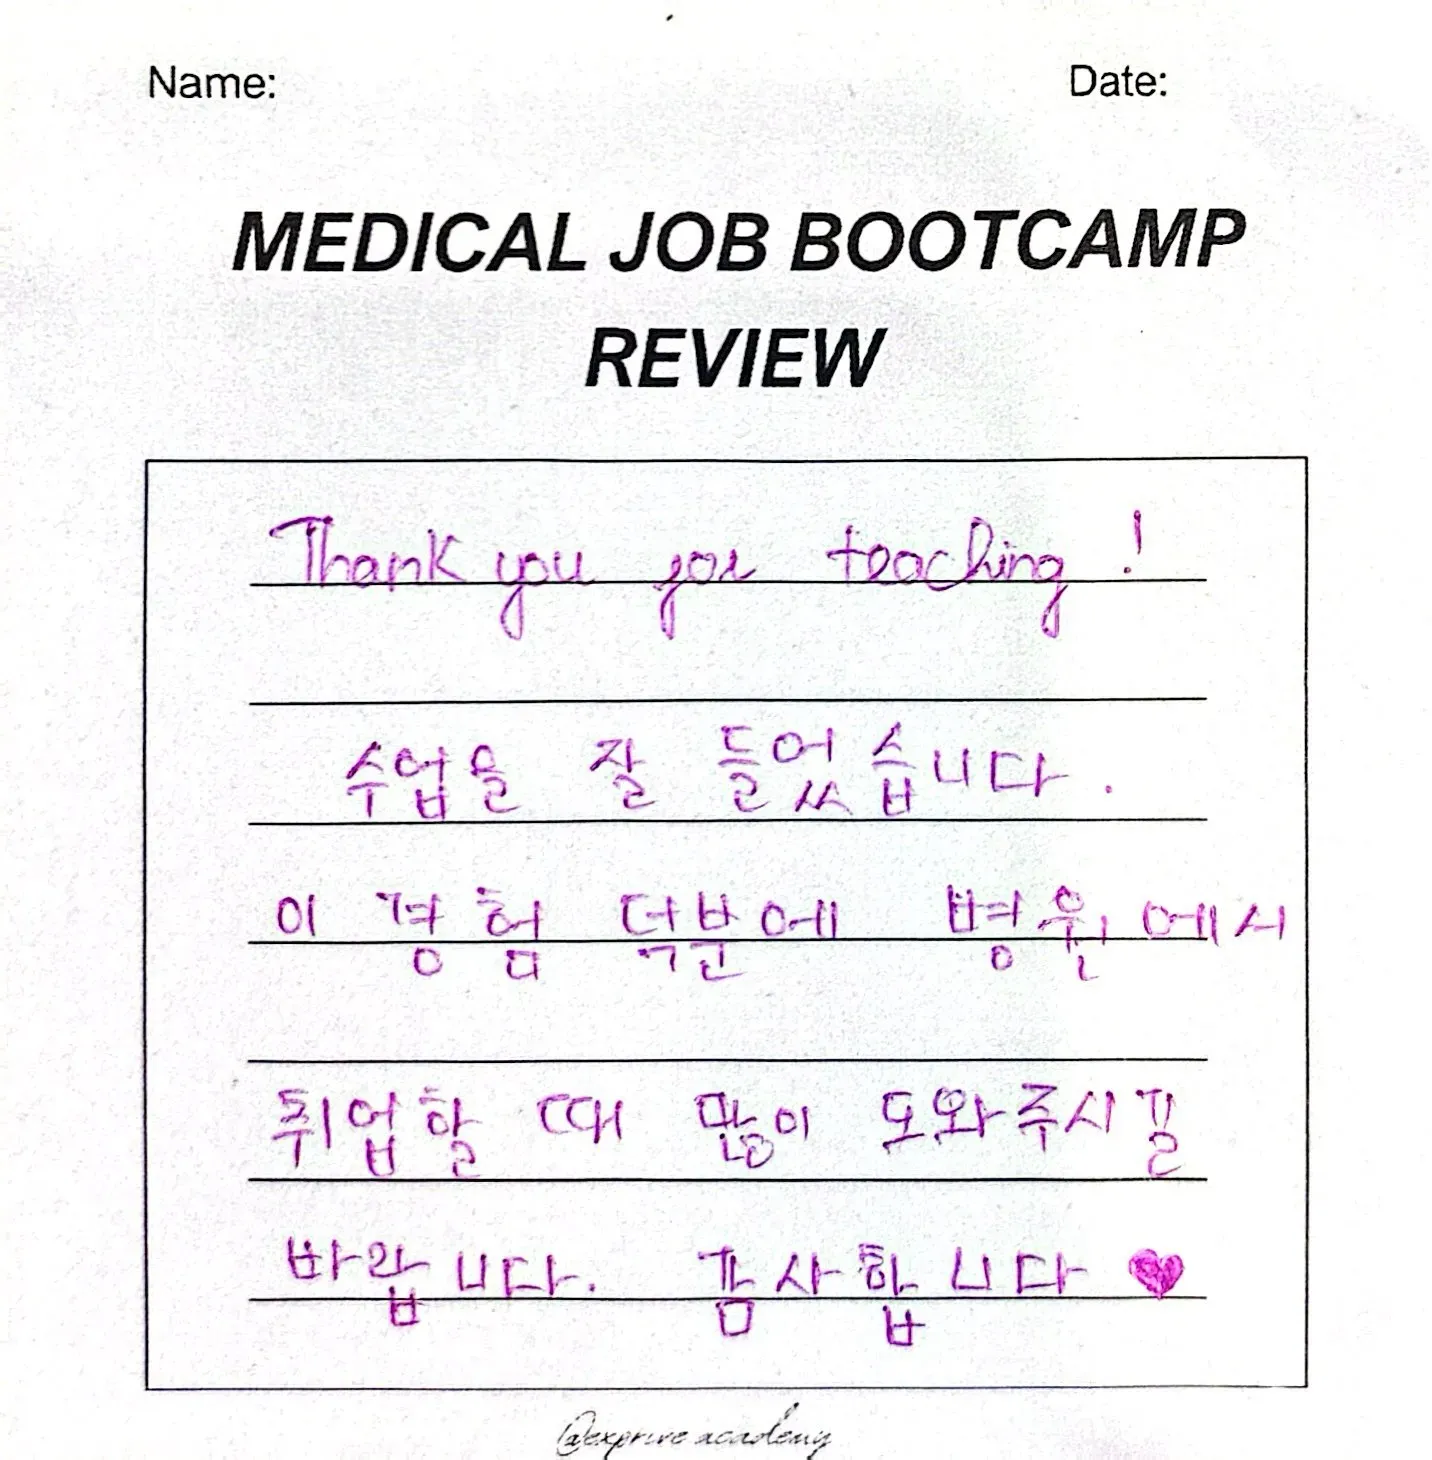 Name: Date:
MEDICAL JOB BOOTCAMP
REVIEW
Thank you for teaching !
수업을 잘 들었습니다.
이 경험 덕분에 병원에서
취업할 때 많이 도와주시길
바랍니다. 감사합니다 ♥
@exprive academy